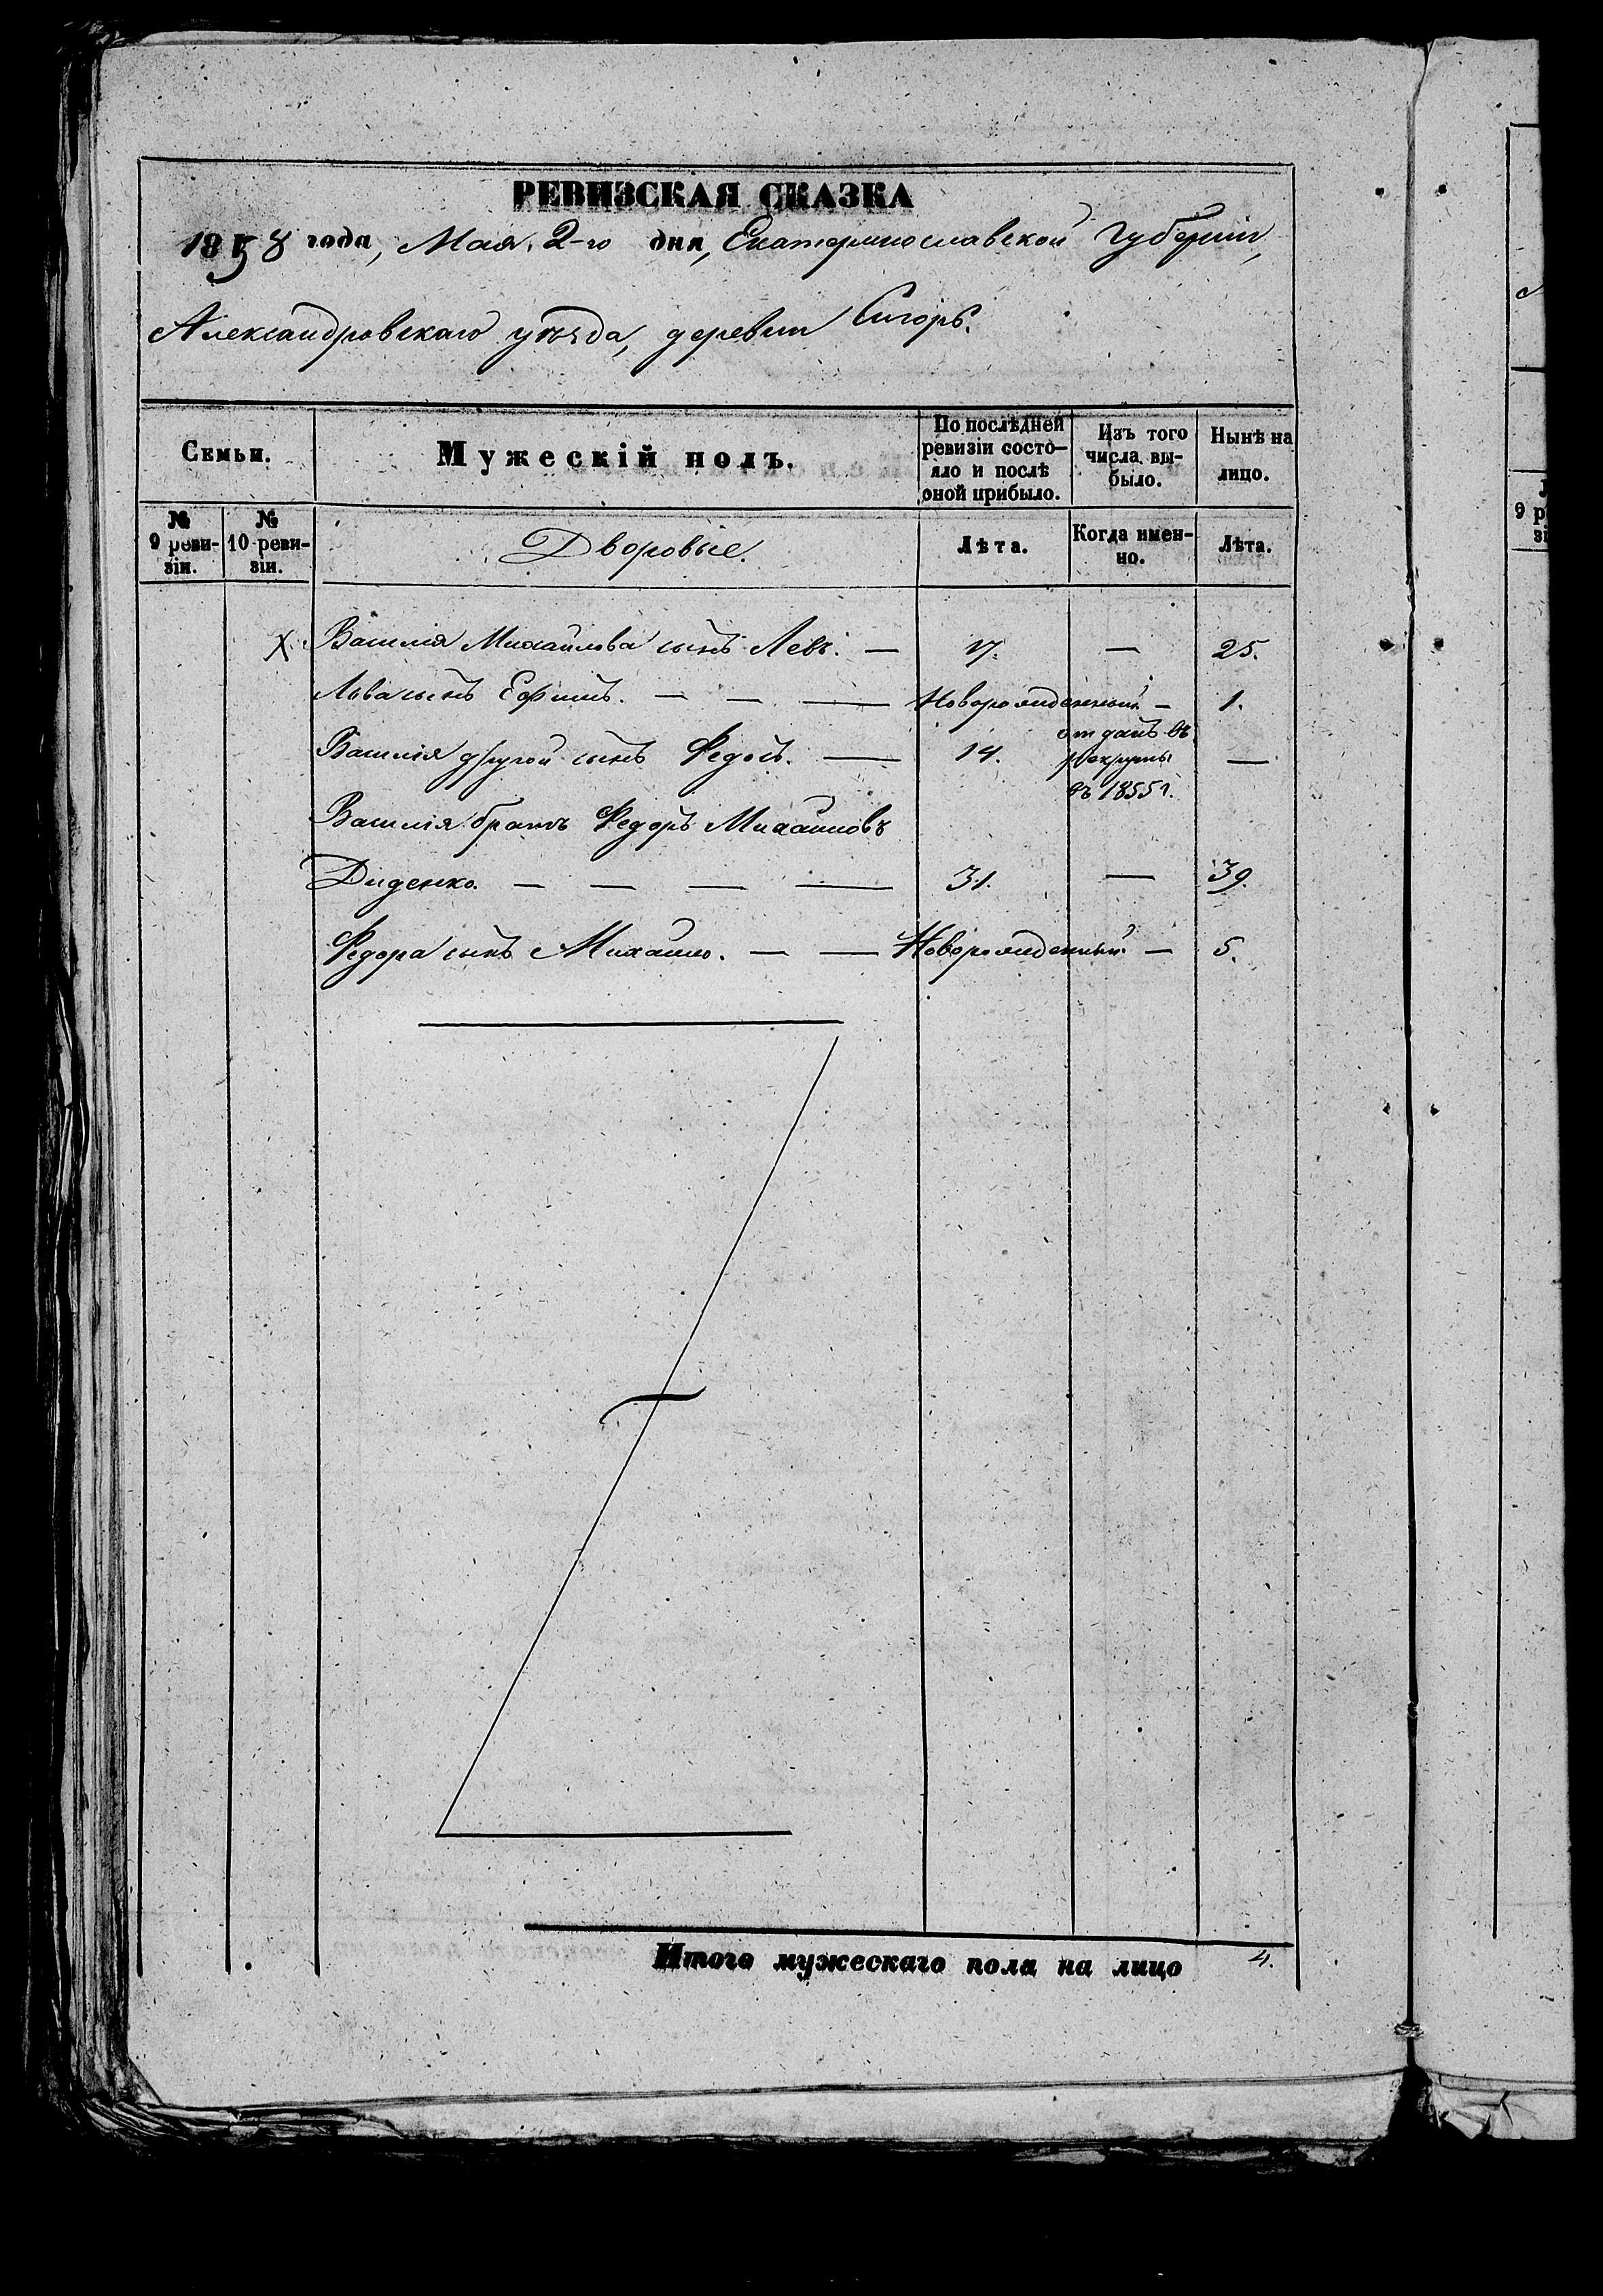 РЕВИЗСКАЯ СКАЗКА
1858 года, Мая 2-го дня, Екатеринославской Губерніи,
Александровскаго уѣзда, деревни
Семьи.
Мужескій полъ.
По послѣдней ревизіи состо-
яло и послѣ
оной прибыло.
Изъ того
числа вы-
было.
Нынѣ на
лицо.
№
9 реви-
зіи.
№
10 реви-
зіи.
Дворовые.
Лѣта.
Когда имен-
но.
Лѣта.
X. Василія Михайлова сынъ Левъ. — 17. — 25.
Льва сынъ Ефимъ. — — — Новорожденный — 1.
Василія другой сынъ Федотъ. — 14. отданъ въ рекруты въ 1855 г. —
Василія братъ Федоръ Михайловъ
Диденко. — — — — 31. — 39.
Федора сынъ Михайло. — — Новорожденный — 5.
Итого мужескаго пола на лицо 4.
9 р
зі